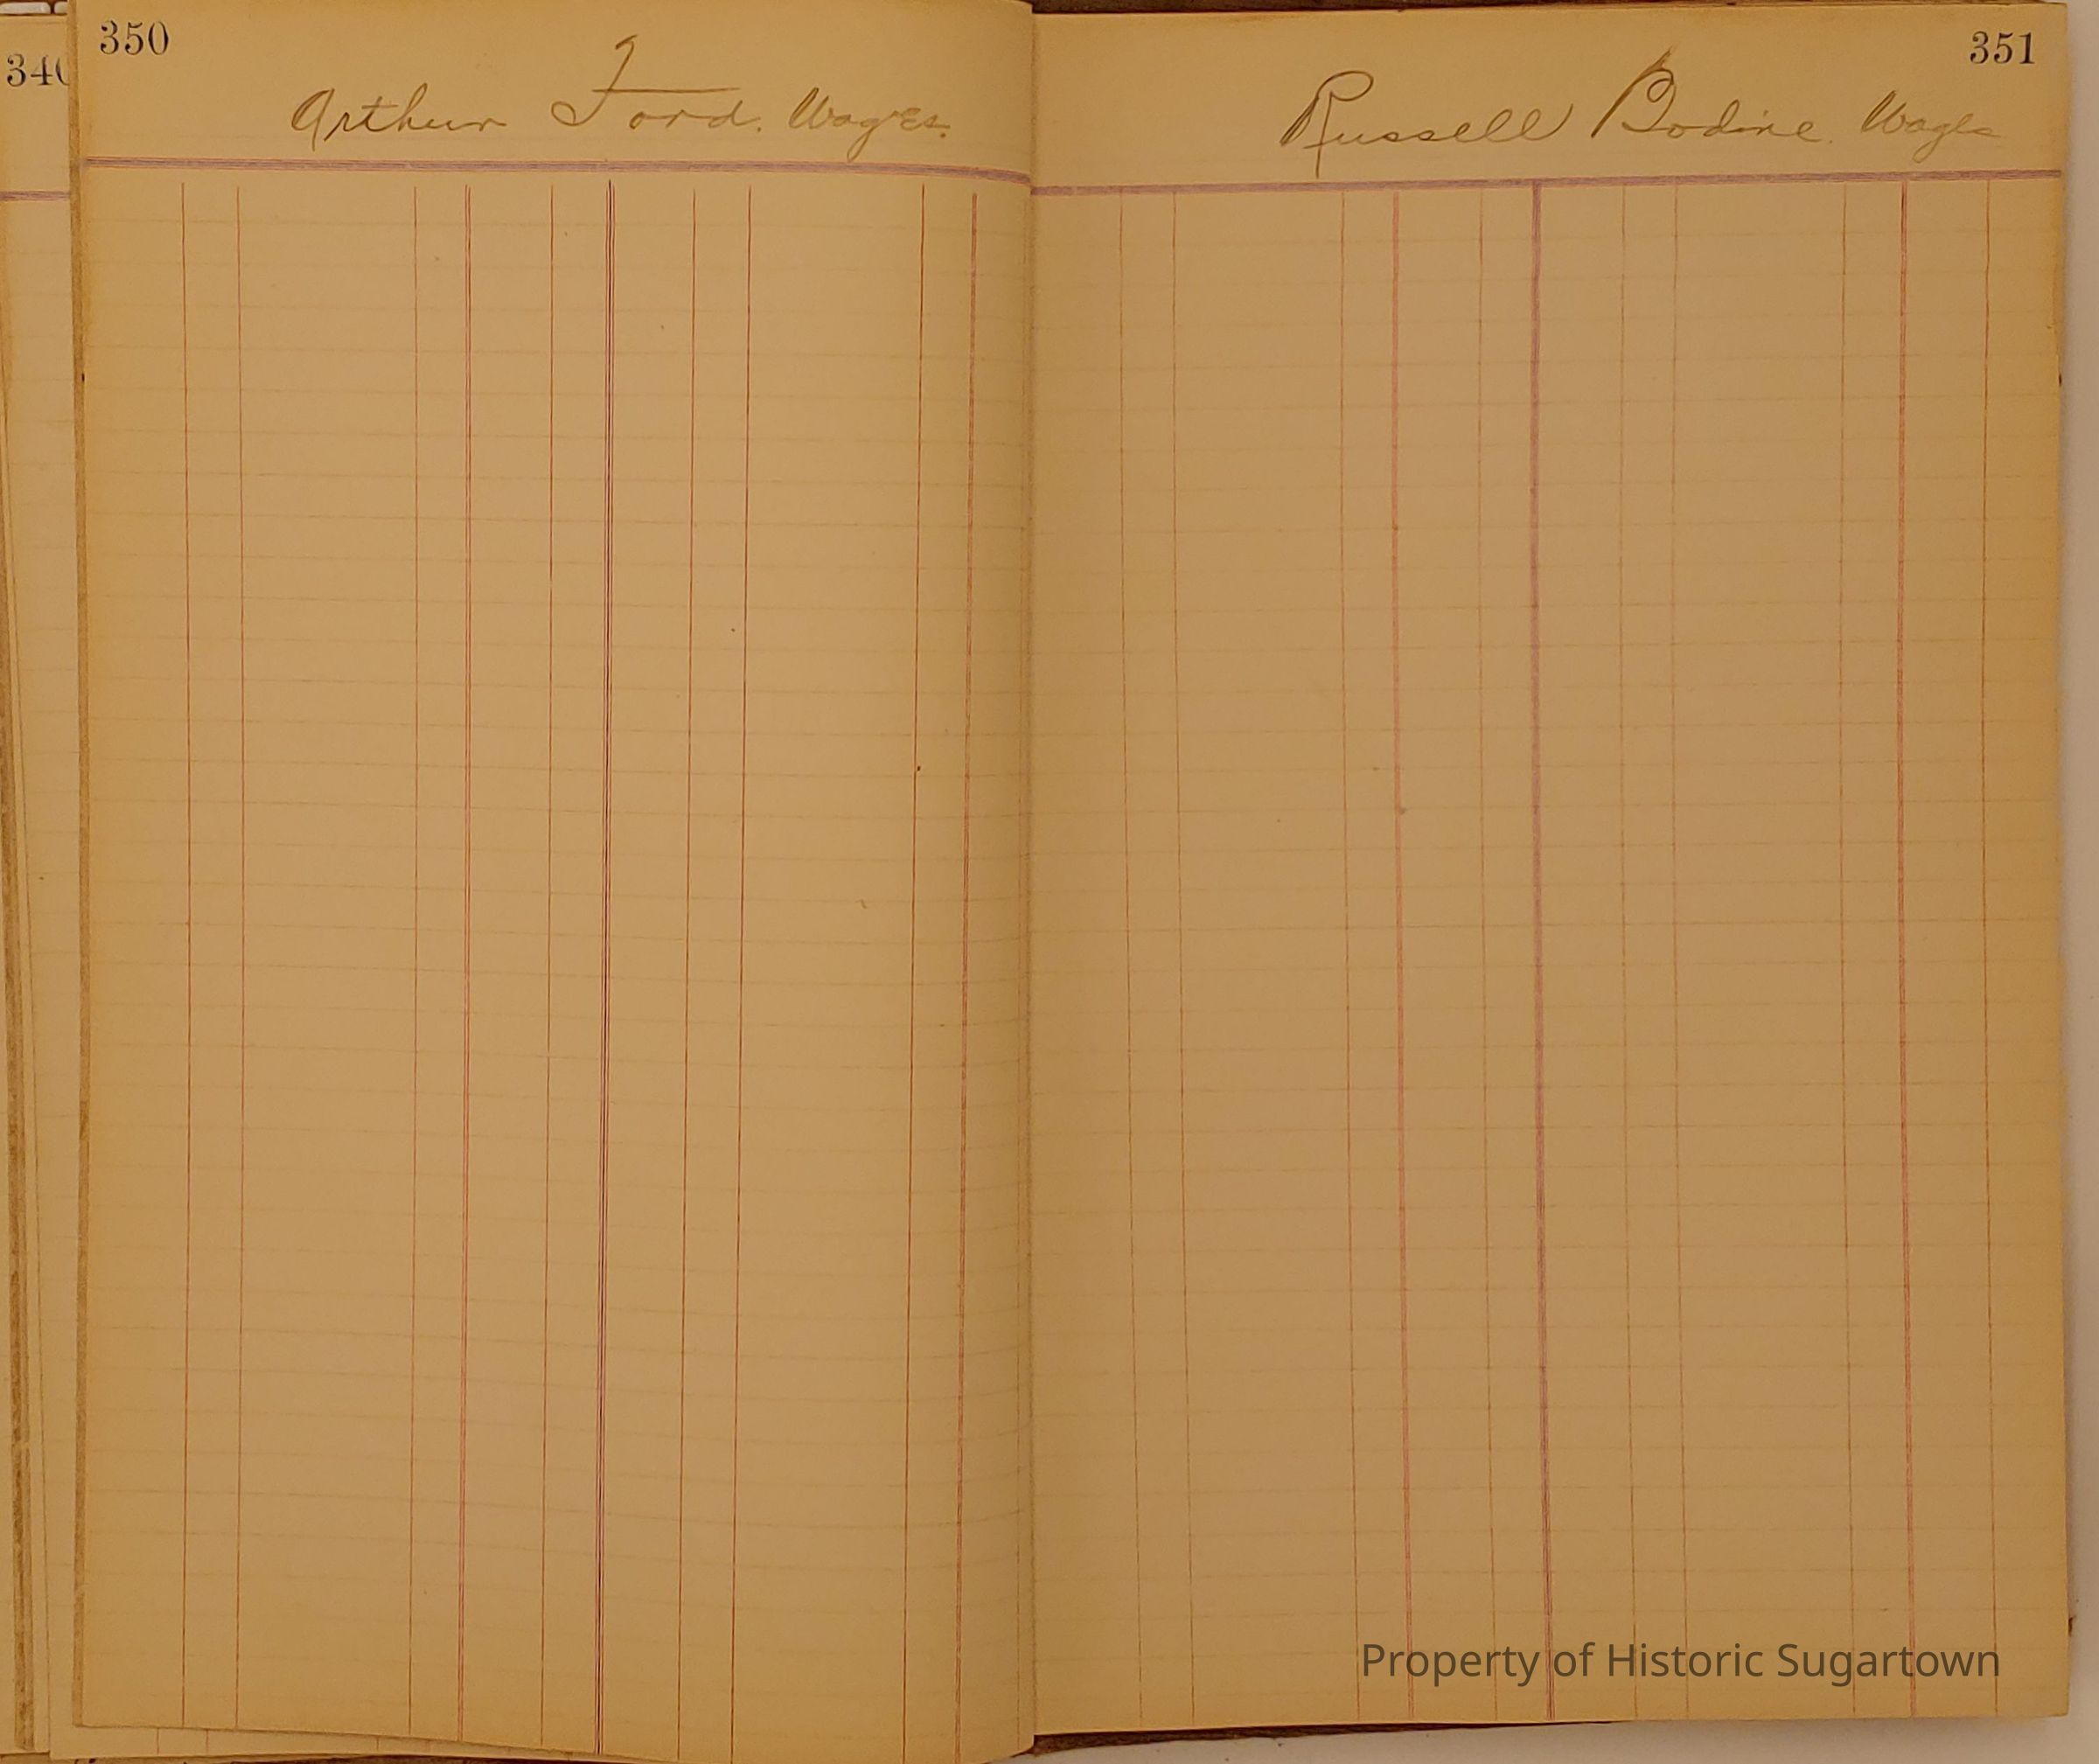 350
Arthur Ford. Wages.
351
Russell Bodine. Wages
Property of Historic Sugartown